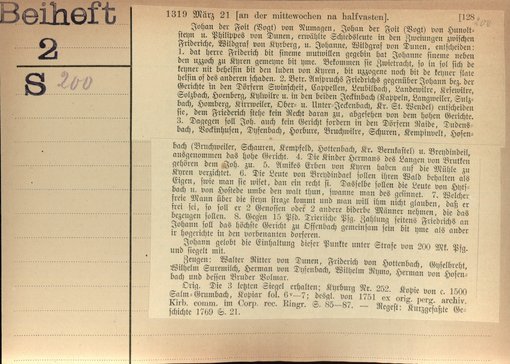 Beiheft
2
S 200
1319 März 21 [an der mittewochen na halfvasten]. [128
200
Johan der Foit (Vogt) von Rumnagen, Johan der Foit (Vogt) von Hunolt-
steyn u. Philipps von Dunen, erwählte Schiedsleute in den Zweiungen zwischen
Friderich, Wildgraf von Kyrberg, u. Johanne, Wildgraf von Dunen, entscheiden:
1. dat herre Friderich bit sineme mutwillen gegebin hat Johanne sineme neben
den uzzoch zu Kyren gemeyne bit yme. Bekommen sie zweitracht, so in sol sich de
keyner nit behelfin bit den luden von Kyren, bit uzzogene noch bit de keyner state
helfin of des anderen schaden. 2. Betr. Anspruch Friderichs gegenüber Johann bez. der
Gerichte in den Dörfern Swinscheit, Cappellen, Leubilbach, Landewilre, Kesewilre,
Solzbach, Homberg, Kylwilre u. in den beiden Jeckinbach (Kappeln, Langweiler, Sulz-
bach, Homberg, Kirrweiler, Ober- u. Unter-Jeckenbach, Kr. St. Wendel) entscheiden
sie, dem Friderich stehe kein Recht daran zu, abgesehen von dem hohen Gerichte.
3. Dagegen soll Joh. auch kein Gericht fordern in den Dörfern Raide, Dudens-
bach, Bockinhusen, Dysenbach, Horbure, Bruchwilre, Schuren, Kempinvelt, Hosen-
bach (Bruchweiler, Schauren, Kempfeld, Hottenbach, Kr. Bernkastel) u. Breydindeil,
ausgenommen das hohe Gericht. 4. Die Kinder Hermans des Langen von Brutken
gehören dem Joh. zu. 5. Amikes Erben von Kyren haben auf die Mühle zu
Kyren verzichtet. 6. Die Leute von Breydindael sollen ihren Wald behalten als
Eigen, swie man sie wiset, dan ein recht si. Dasselbe sollen die Leute von Hytf-
bach u. von Hosfede umbe den walt thun, swanne man des gesinnet. 7. Welcher
freie Mann über die seign straze kommt und man will ihm nicht glauben, daß er
frei sei, so soll er 2 Genossen oder 2 andere biderbe Männer nehmen, die das
bezeugen sollen. 8. Gegen 15 Pfd. Trierische Pfg. Zahlung seitens Friedrichs an
Johann soll das höchste Gericht zu Offenbach gemeinsam sein bit yme als ander
ir hogerichte in den vorbenanten dorferen.
Johann gelobt die Einhaltung dieser Punkte unter Strafe von 200 Mt. Pfg.
und siegelt mit.
Zeugen: Walter Ritter von Dunen, Friderich von Hottenbach, Gyselbreht,
Wilhelm Suremilch, Herman von Dysenbach, Wilhelm Nymo, Herman von Hosen-
bach und dessen Bruder Volmar.
Orig. Die 3 letzten Siegel erhalten; Kyrburg Nr. 252. Kopie von c. 1500
Salm-Grumbach, Kopiar fol. 6v–7; desgl. von 1751 ex orig. perg. archiv.
Kirb. comm. im Corp. rec. Ringr. S. 85—87. — Regest: Kurzgefaßte Ge-
schichte 1769 S. 21.